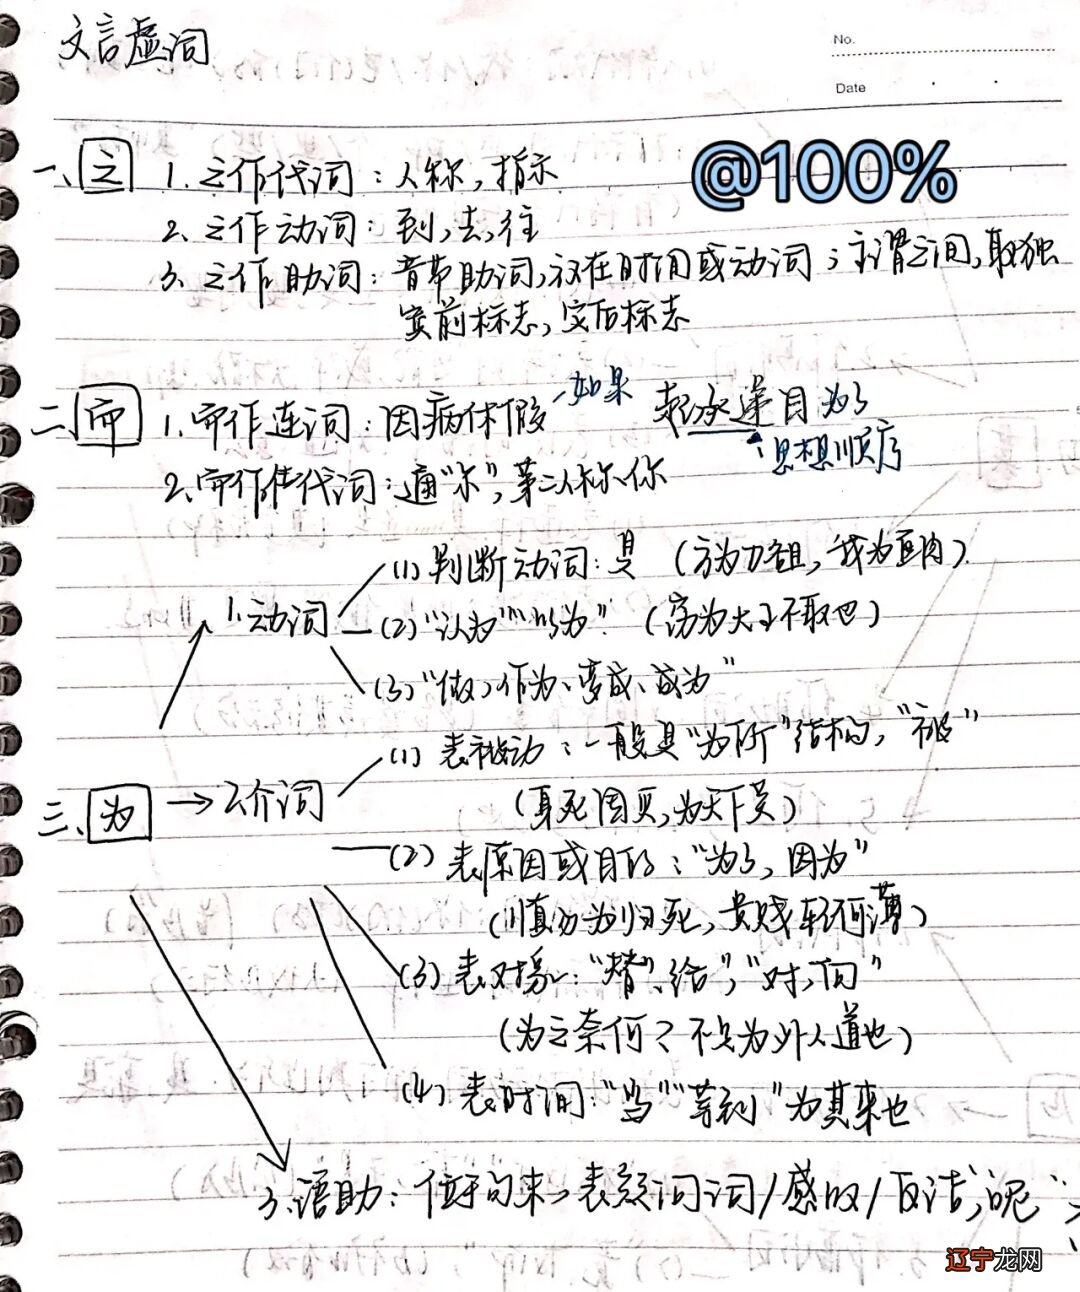 文言虚词
No.
Date
@100%
一、之 1.之作代词：人称，指示
2.之作动词：到，去，往
3.之作助词：音节助词，放在时间或动词；主谓之间，取独
宾前标志，定后标志
二、而 1.而作连词：因病休假 如果 表承递目 为了
思想顺序
2.而作代词：通“尔”，第二人称 你
(1)判断动词：是（方为刀俎，我为鱼肉）
1.动词 (2)“认为”“以为”（窃为大王不取也）
(3)“做，作为、变成、成为”
(1)表被动：一般是“为所”结构，“被”
三、为 →2介词
（身死国灭，为天下笑）
(2)表原因或目的：“为了，因为”
（慎勿为归死，贵贱轻何薄）
(3)表对象：“替”，给”，“对，向”
（为之奈何？不足为外人道也）
(4)表时间：“当”“等到”为其来也
3.语助：位于句末，表疑问词/感叹/反诘，呢”
辽宁龙网